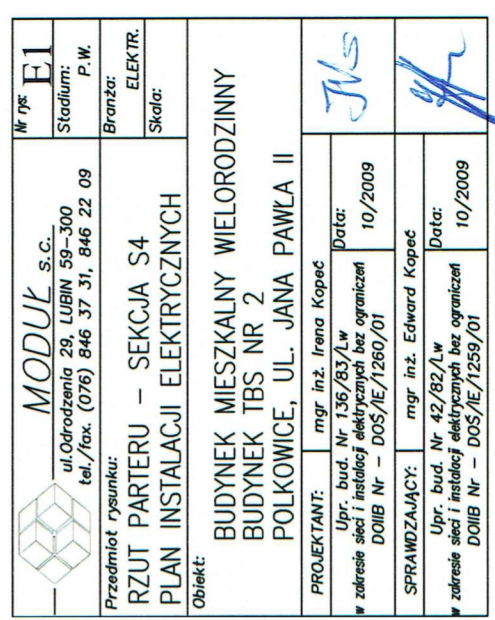 MODUŁ s.c.
ul.Odrodzenia 29, LUBIN 59-300
tel./fax. (076) 846 37 31, 846 22 09
Nr rys: E1
Stadium:
P.W.
Przedmiot rysunku:
RZUT PARTERU – SEKCJA S4
PLAN INSTALACJI ELEKTRYCZNYCH
Branża:
ELEKTR.
Skala:
Obiekt:
BUDYNEK MIESZKALNY WIELORODZINNY
BUDYNEK TBS NR 2
POLKOWICE, UL. JANA PAWŁA II
PROJEKTANT: mgr inż. Irena Kopeć
Upr. bud. Nr 136/83/Lw
w zakresie sieci i instalacji elektrycznych bez ograniczeń
DOIIB Nr – DOŚ/IE/1260/01
Data:
10/2009
SPRAWDZAJĄCY: mgr inż. Edward Kopeć
Upr. bud. Nr 42/82/Lw
w zakresie sieci i instalacji elektrycznych bez ograniczeń
DOIIB Nr – DOŚ/IE/1259/01
Data:
10/2009